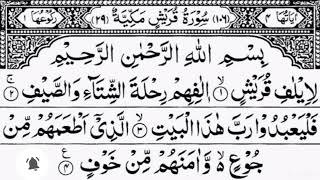 اٰیَاتُهَا ۴ (۱۰۶) سُوْرَةُ قُرَيْشٍ مَكِّيَّةٌ (۲۹) رُكُوْعُهَا ۱
بِسْمِ اللّٰهِ الرَّحْمٰنِ الرَّحِيْمِ
لِاِيْلٰفِ قُرَيْشٍ ۙ‏ ۱ اٖلٰفِهِمْ رِحْلَةَ الشِّتَآءِ وَالصَّيْفِ ۚ ۲
فَلْيَعْبُدُوْا رَبَّ هٰذَا الْبَيْتِ ۙ ۳ الَّذِيْۤ اَطْعَمَهُمْ مِّنْ
جُوْعٍ ۙ۬ وَّاٰمَنَهُمْ مِّنْ خَوْفٍ ۴ ع